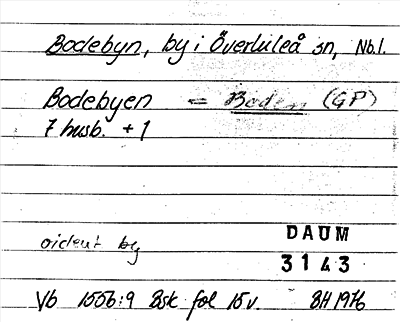 Bodebyn, by i Överluleå sn, Nb.l.
Bodebyen = Boden (GP)
7 husb. + 1
oident by
DAUM
3143
Vb 1556:9 Bsk fol 15v. BH 1976